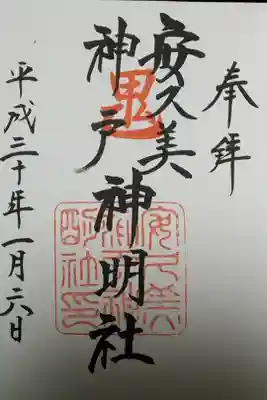 奉拝
安久美
神戸神明社
平成三十年一月六日
鬼
安久美神戸神明社印